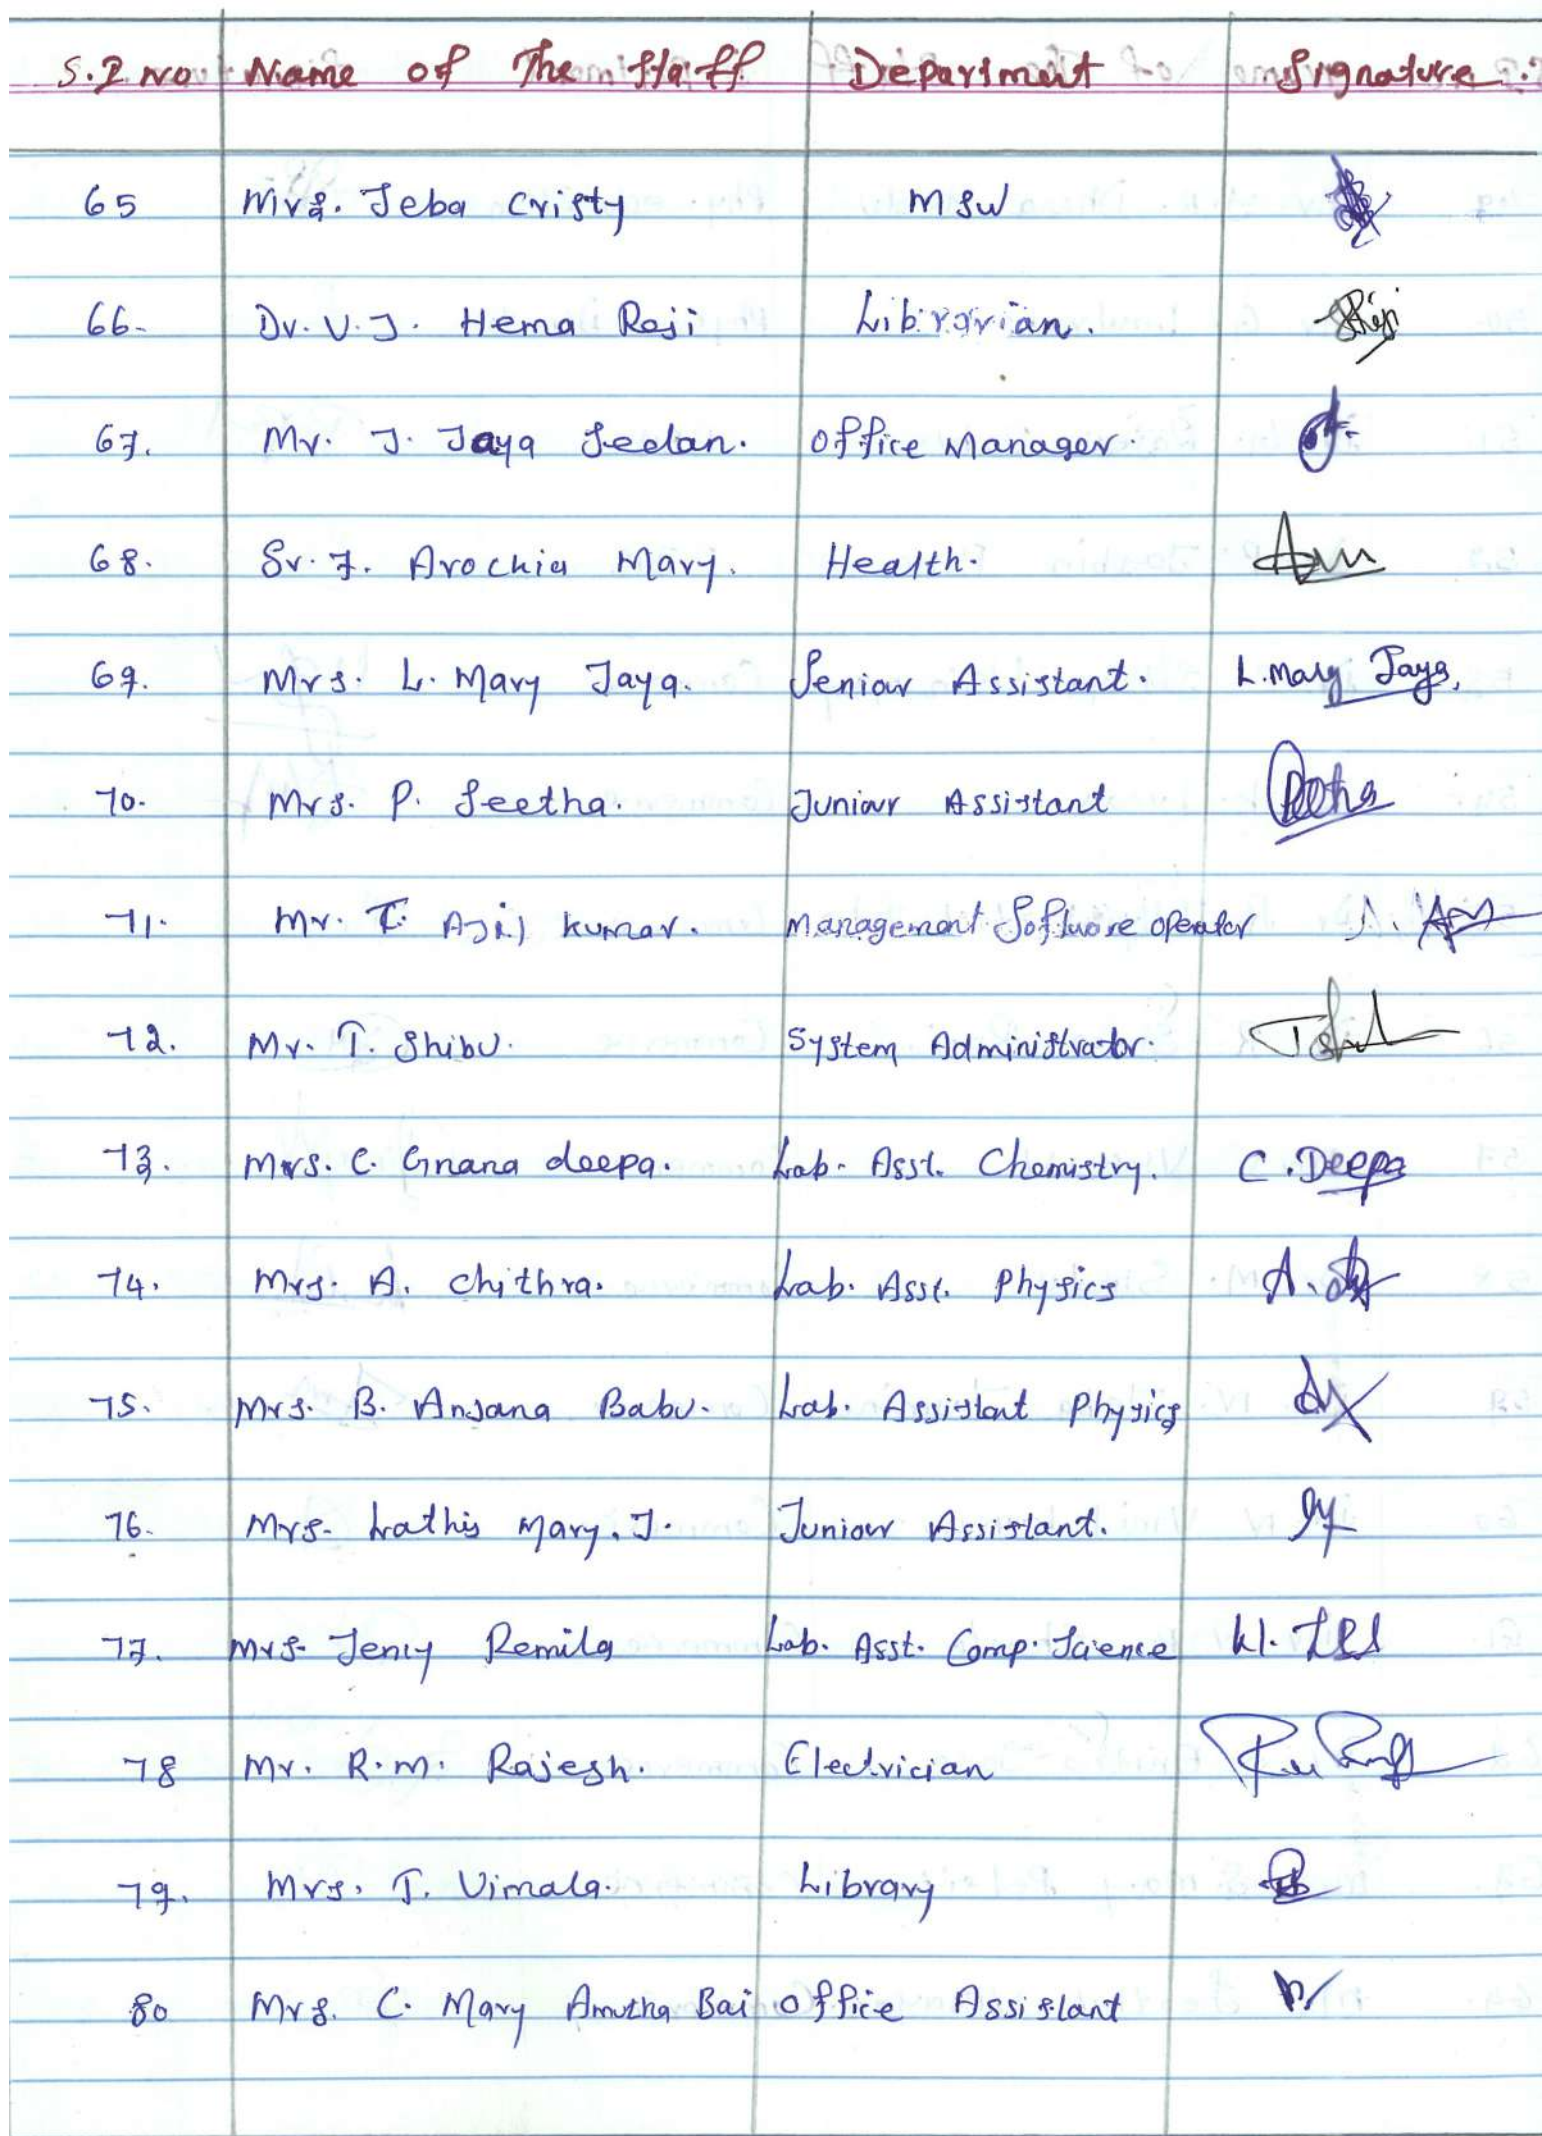 S.l no Name of The Staff Department Signature
65 Mrs. Jeba Cristy MSW
66. Dr. V.J. Hema Reji Librarian.
67. Mr. J. Jaya Seelan. Office Manager.
68. Sr. F. Arochia Mary. Health.
69. Mrs. L. Mary Jaya. Seniour Assistant. L. Mary Jaya,
70. Mrs. P. Seetha. Juniour Assistant
71. Mr. Ajil kumar. Management Software operator
72. Mr. T. Shibu. System Administrator.
73. Mrs. C. Gnana deepa. Lab. Asst. Chemistry. C. Deepa
74. Mrs. A. Chithra. Lab. Asst. Physics
75. Mrs. B. Anjana Babu. Lab. Assistant Physics
76. Mrs. Lathis Mary. J. Juniour Assistant.
77. Mrs. Jency Remila Lab. Asst. Comp. Science
78 Mr. R.M. Rajesh. Electrician
79. Mrs. T. Vimala. Library
80 Mrs. C. Mary Amutha Bai Office Assistant